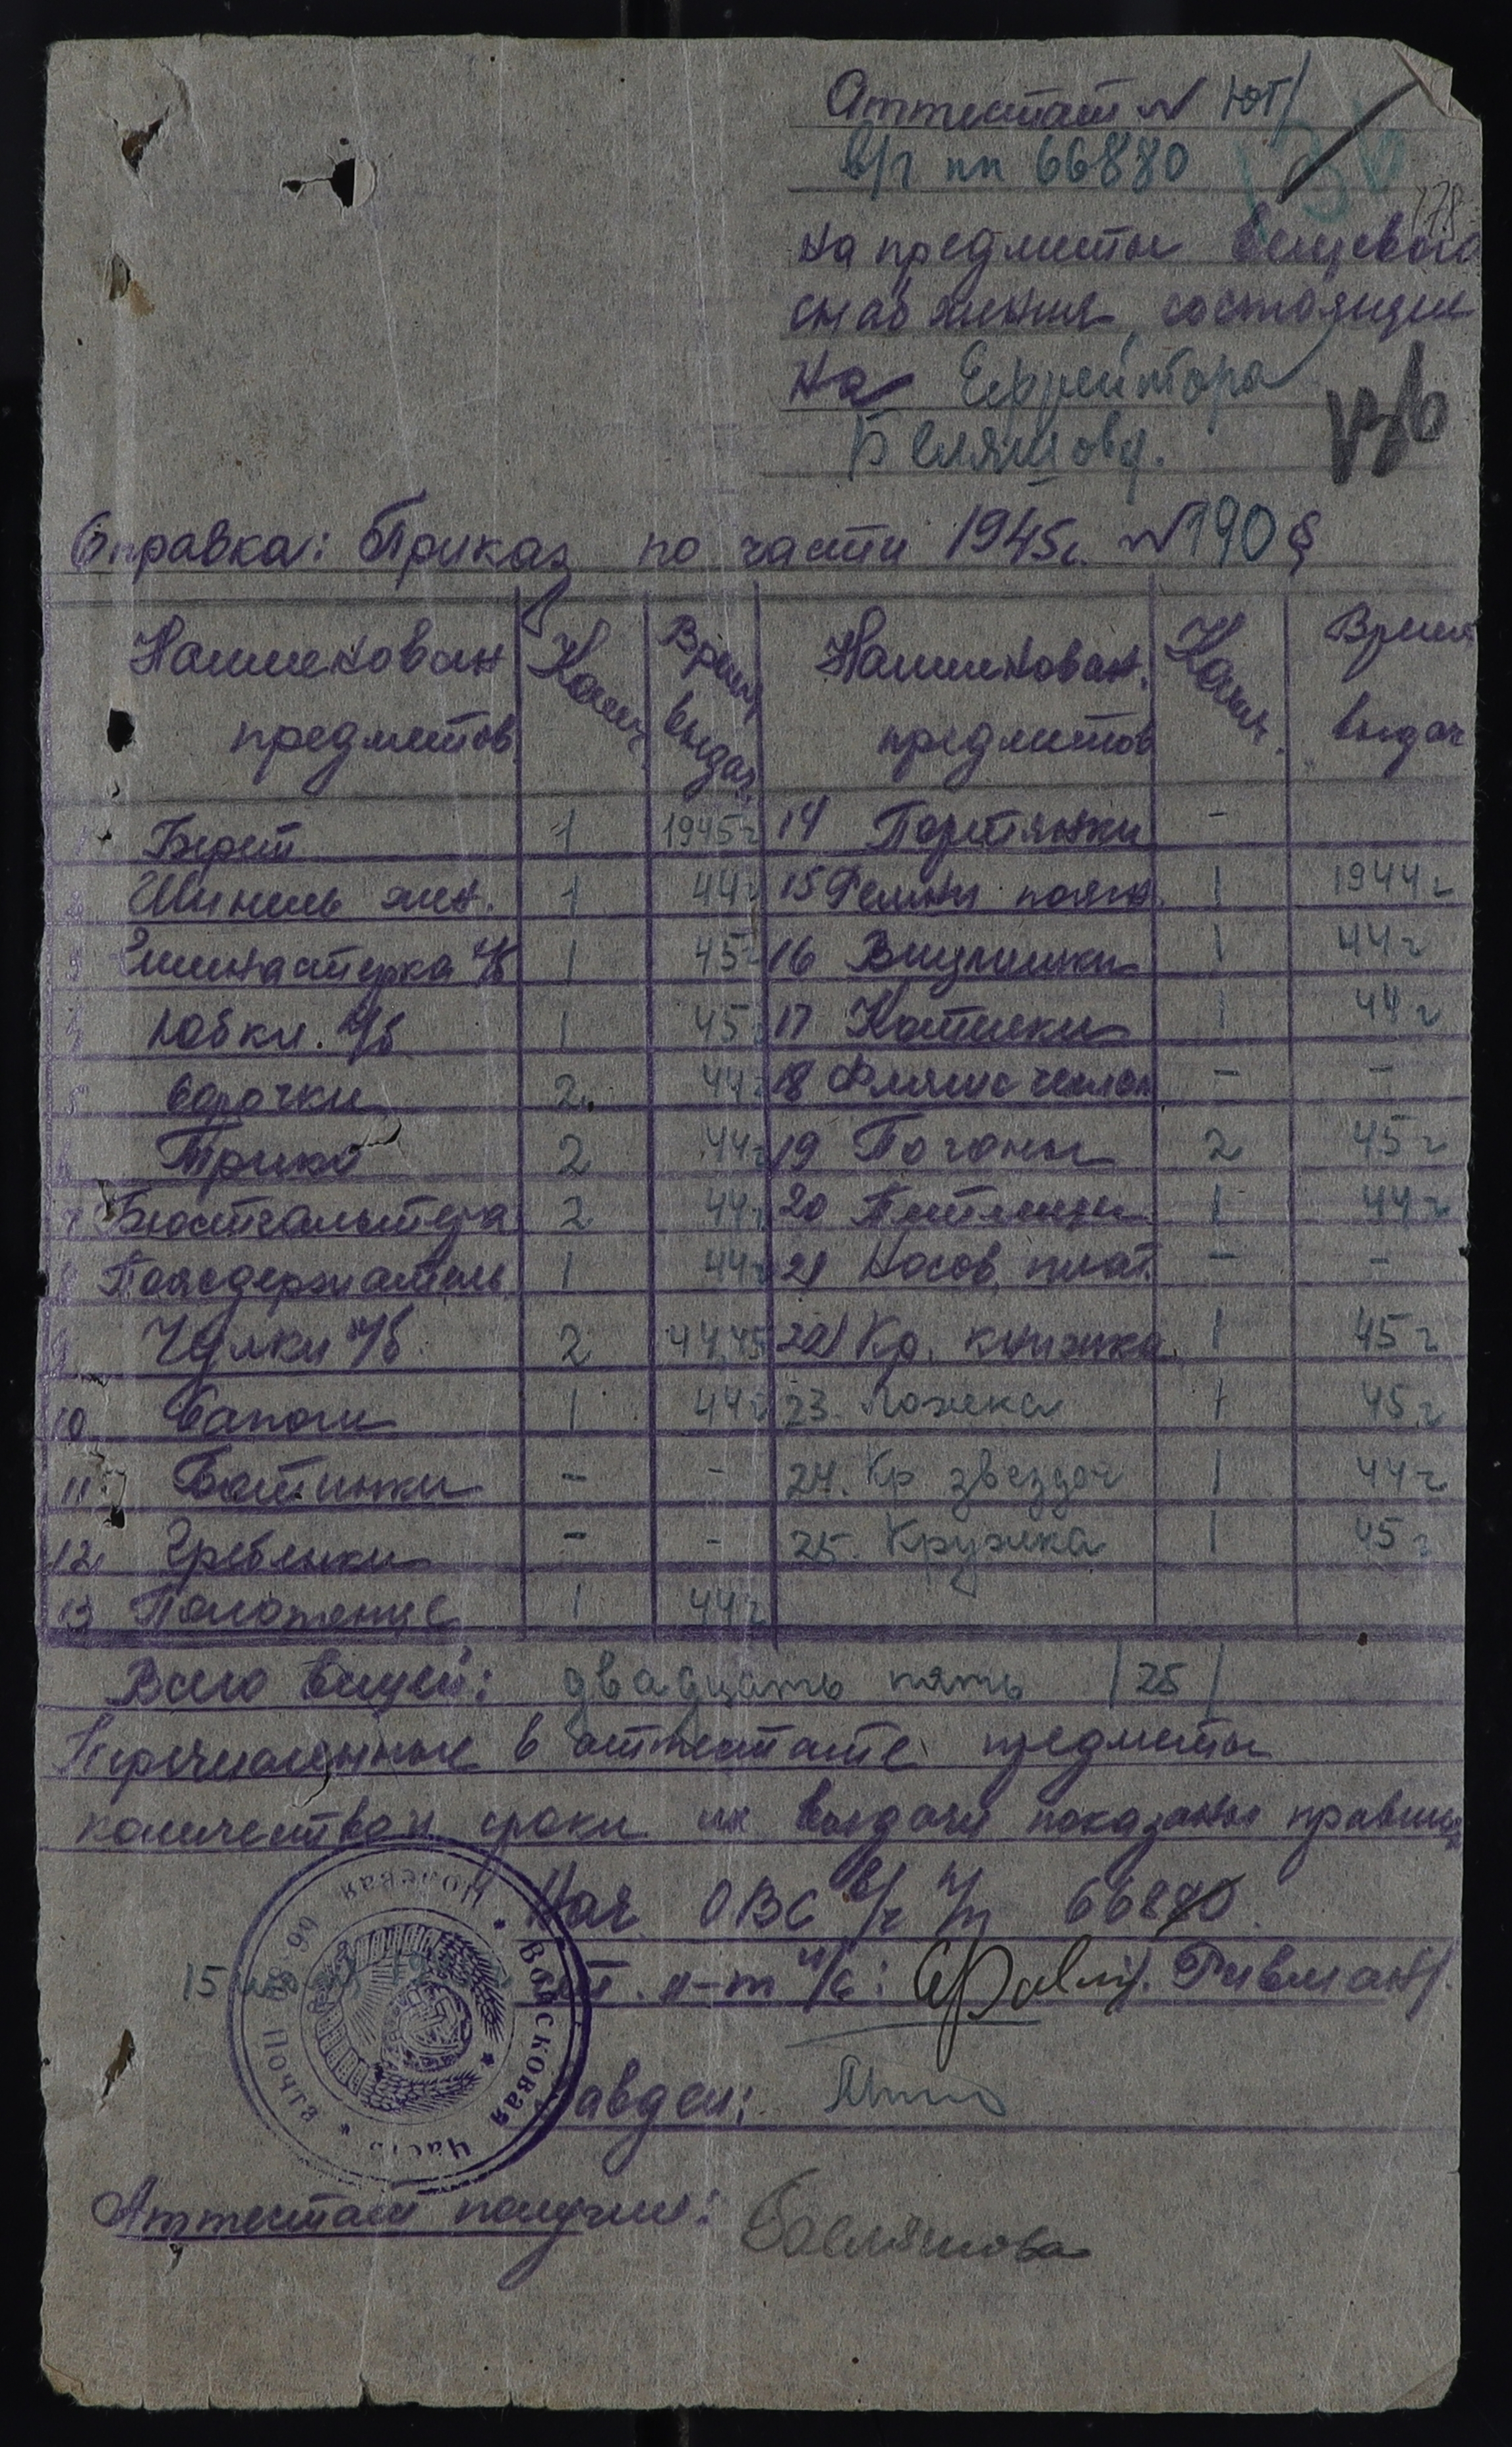 Аттестат №
в/ч пп 66880
136
178
на предметы вещевого
снабжения, состоящие
на Ефрейтора
136
Беляшова.
Справка: Приказ по части 1945г. №190 §
Наименован предметов Колич. Время выдач. Наименован. предметов Колич. Время выдач
1 Берет 1 1945г 14 Портянки -
2 Шинель жен. 1 44г 15 Ремни поясн. 1 1944г
3 Гимнастерка х/б 1 45г 16 Вещмешки 1 44г
4 Юбки. х/б 1 45г 17 Котелки 1 44г
5 Сорочки 2. 44г 18 Фляги с чехлом - -
6 Трико 2 44г 19 Погоны 2 45г
7 Бюстгальтера 2 44г 20 Петлицы 1 44г
8 Поясодержатель 1 44г 21 Носов. плат. - -
9 Чулки х/б 2 44,45 22 Кр. книжка 1 45г
10 Сапоги 1 44г 23. Ложка 1 45г
11 Ботинки - - 24. Кр звездоч 1 44г
12 Гребенки - - 25. Кружка 1 45г
13 Полотенце 1 44г
Всего вещей: двадцать пять /25/
Перечисленные в аттестате предметы
количество и сроки их выдачи показаны правильно
Нач ОВС в/ч п/п 66880.
15 ст. л-т и/с: /Ривман/.
Войсковая часть * Полевая почта
Завдел:
Аттестат получил: Беляшова